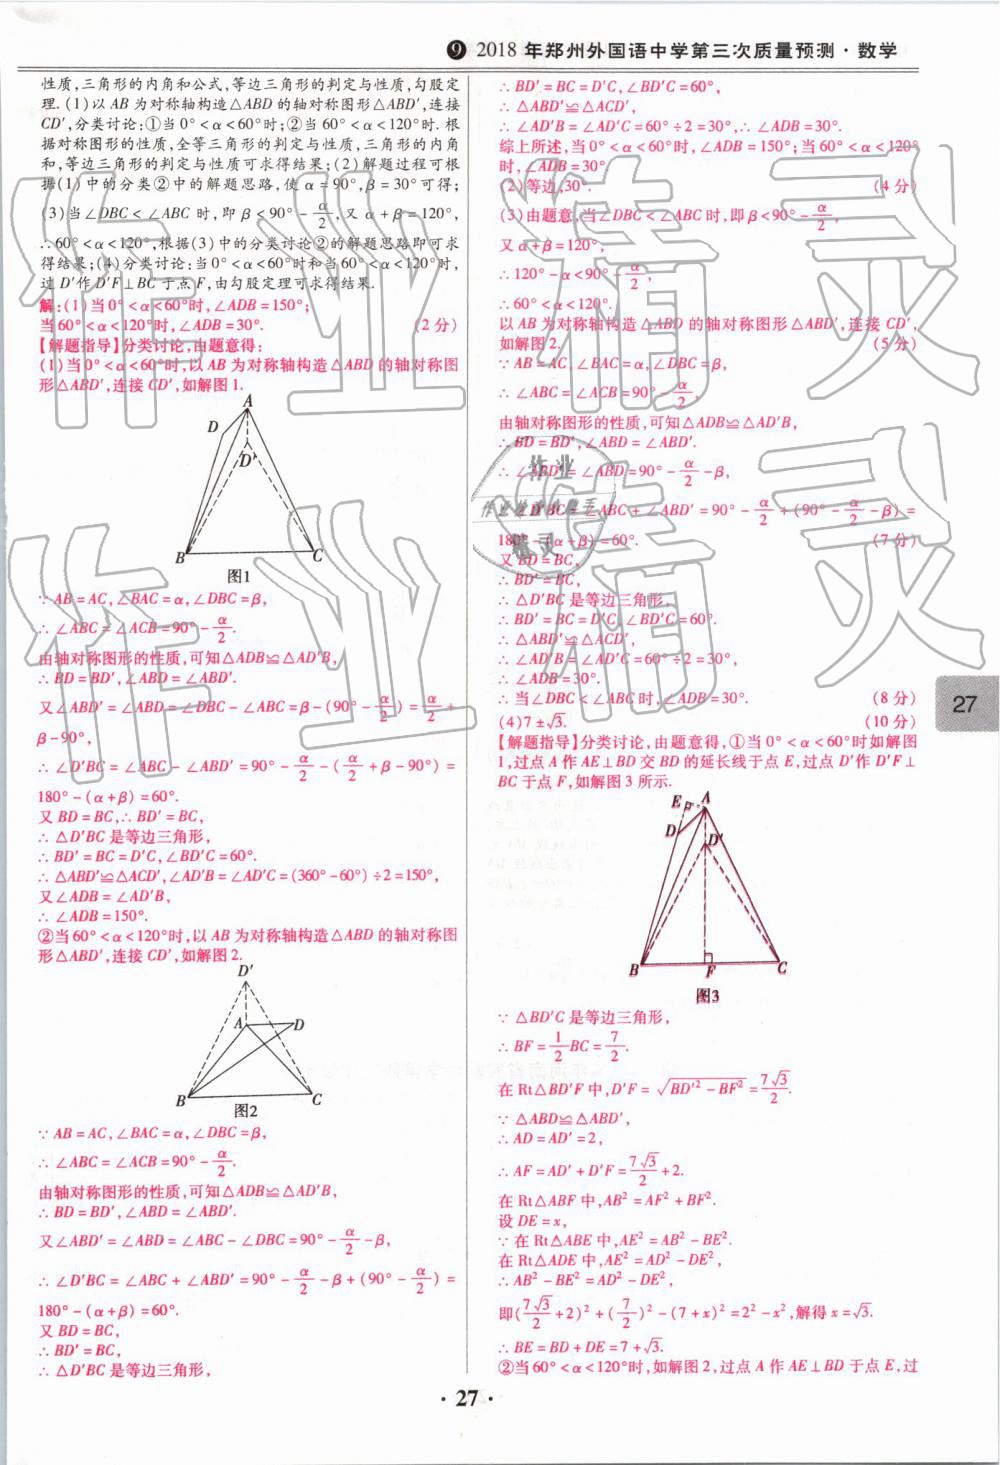 ❾ 2018 年郑州外国语中学第三次质量预测·数学
性质,三角形的内角和公式,等边三角形的判定与性质,勾股定
理.(1)以 AB 为对称轴构造△ABD 的轴对称图形△ABD′,连接
CD′,分类讨论:①当 0°<α<60°时;②当 60°<α<120°时. 根
据对称图形的性质,全等三角形的判定与性质,三角形的内角
和,等边三角形的判定与性质可求得结果;(2)解题过程可根
据(1)中的分类②中的解题思路,使 α=90°,β=30°可得;
(3)当∠DBC<∠ABC 时,即 β<90°-α/2,又 α+β=120°,
∴60°<α<120°,根据(3)中的分类讨论②的解题思路即可求
得结果;(4)分类讨论:当 0°<α<60°时和当 60°<α<120°时,
过 D′作 D′F⊥BC 于点 F,由勾股定理可求得结果.
解:(1)当 0°<α<60°时,∠ADB=150°;
当 60°<α<120°时,∠ADB=30°. (2 分)
【解题指导】分类讨论,由题意得:
(1)当 0°<α<60°时,以 AB 为对称轴构造△ABD 的轴对称图
形△ABD′,连接 CD′,如解图 1.
A
D
D′
B
C
图1
∵ AB=AC,∠BAC=α,∠DBC=β,
∴ ∠ABC=∠ACB=90°-α/2.
由轴对称图形的性质,可知△ADB≌△AD′B,
∴ BD=BD′,∠ABD=∠ABD′.
又∠ABD′=∠ABD=∠DBC-∠ABC=β-(90°-α/2)=α/2+
β-90°,
∴ ∠D′BC=∠ABC-∠ABD′=90°-α/2-(α/2+β-90°)=
180°-(α+β)=60°.
又 BD=BC,∴ BD′=BC,
∴ △D′BC 是等边三角形,
∴ BD′=BC=D′C,∠BD′C=60°.
∴ △ABD′≌△ACD′,∠AD′B=∠AD′C=(360°-60°)÷2=150°,
又∠ADB=∠AD′B,
∴ ∠ADB=150°.
②当 60°<α<120°时,以 AB 为对称轴构造△ABD 的轴对称图
形△ABD′,连接 CD′,如解图 2.
D′
A
D
B
C
图2
∵ AB=AC,∠BAC=α,∠DBC=β,
∴ ∠ABC=∠ACB=90°-α/2.
由轴对称图形的性质,可知△ADB≌△AD′B,
∴ BD=BD′,∠ABD=∠ABD′.
又∠ABD′=∠ABD=∠ABC-∠DBC=90°-α/2-β,
∴ ∠D′BC=∠ABC+∠ABD′=90°-α/2-β+(90°-α/2)=
180°-(α+β)=60°.
又 BD=BC,
∴ BD′=BC,
∴ △D′BC 是等边三角形,
∴ BD′=BC=D′C,∠BD′C=60°,
∴ △ABD′≌△ACD′,
∴ ∠AD′B=∠AD′C=60°÷2=30°,∴ ∠ADB=30°.
综上所述,当 0°<α<60°时,∠ADB=150°;当 60°<α<120°
时,∠ADB=30°.
(2)等边,30°. (4 分)
(3)由题意,当∠DBC<∠ABC 时,即 β<90°-α/2,
又 α+β=120°,
∴120°-α<90°-α/2,
∴60°<α<120°.
以 AB 为对称轴构造△ABD 的轴对称图形△ABD′,连接 CD′,
如解图 2. (5 分)
∵ AB=AC,∠BAC=α,∠DBC=β,
∴ ∠ABC=∠ACB=90°-α/2,
由轴对称图形的性质,可知△ADB≌△AD′B,
∴ BD=BD′,∠ABD=∠ABD′.
∴ ∠ABD′=∠ABD=90°-α/2-β,
∴ ∠D′BC=∠ABC+∠ABD′=90°-α/2+(90°-α/2-β)=
180°-(α+β)=60°. (7 分)
又 BD=BC,
∴ BD′=BC,
∴ △D′BC 是等边三角形,
∴ BD′=BC=D′C,∠BD′C=60°.
∴ △ABD′≌△ACD′,
∴ ∠AD′B=∠AD′C=60°÷2=30°,
∴ ∠ADB=30°.
∴ 当∠DBC<∠ABC 时,∠ADB=30°. (8 分)
(4)7±√3. (10 分)
【解题指导】分类讨论,由题意得,①当 0°<α<60°时如解图
1,过点 A 作 AE⊥BD 交 BD 的延长线于点 E,过点 D′作 D′F⊥
BC 于点 F,如解图 3 所示.
E
A
D
D′
B
F
C
图3
∵ △BD′C 是等边三角形,
∴ BF=1/2 BC=7/2.
在 Rt△BD′F 中,D′F=√(BD′²-BF²)=7√3/2.
∵ △ABD≌△ABD′,
∴ AD=AD′=2,
∴ AF=AD′+D′F=7√3/2+2.
在 Rt△ABF 中,AB²=AF²+BF².
设 DE=x,
∵ 在 Rt△ABE 中,AE²=AB²-BE².
在 Rt△ADE 中,AE²=AD²-DE²,
∴ AB²-BE²=AD²-DE²,
即(7√3/2+2)²+(7/2)²-(7+x)²=2²-x²,解得 x=√3.
∴ BE=BD+DE=7+√3.
②当 60°<α<120°时,如解图 2,过点 A 作 AE⊥BD 于点 E,过
27
· 27 ·
作业精灵
作业精灵
作业
精灵